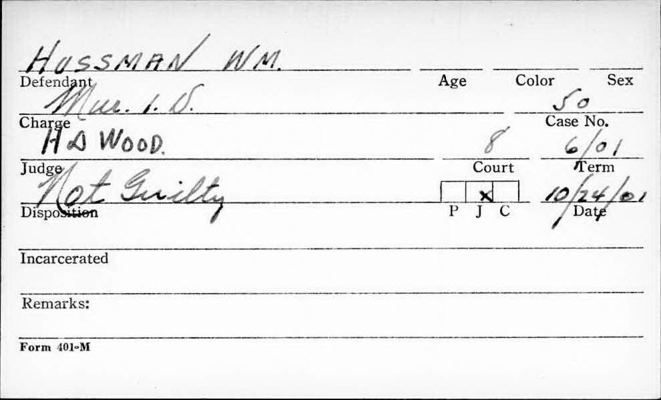 HUSSMAN WM.
Defendant Age Color Sex
Mur. 1. D. 50
Charge Case No.
H D WOOD. 8 6/01
Judge Court Term
Not Guilty x 10/24/01
Disposition P J C Date
Incarcerated
Remarks:
Form 401-M